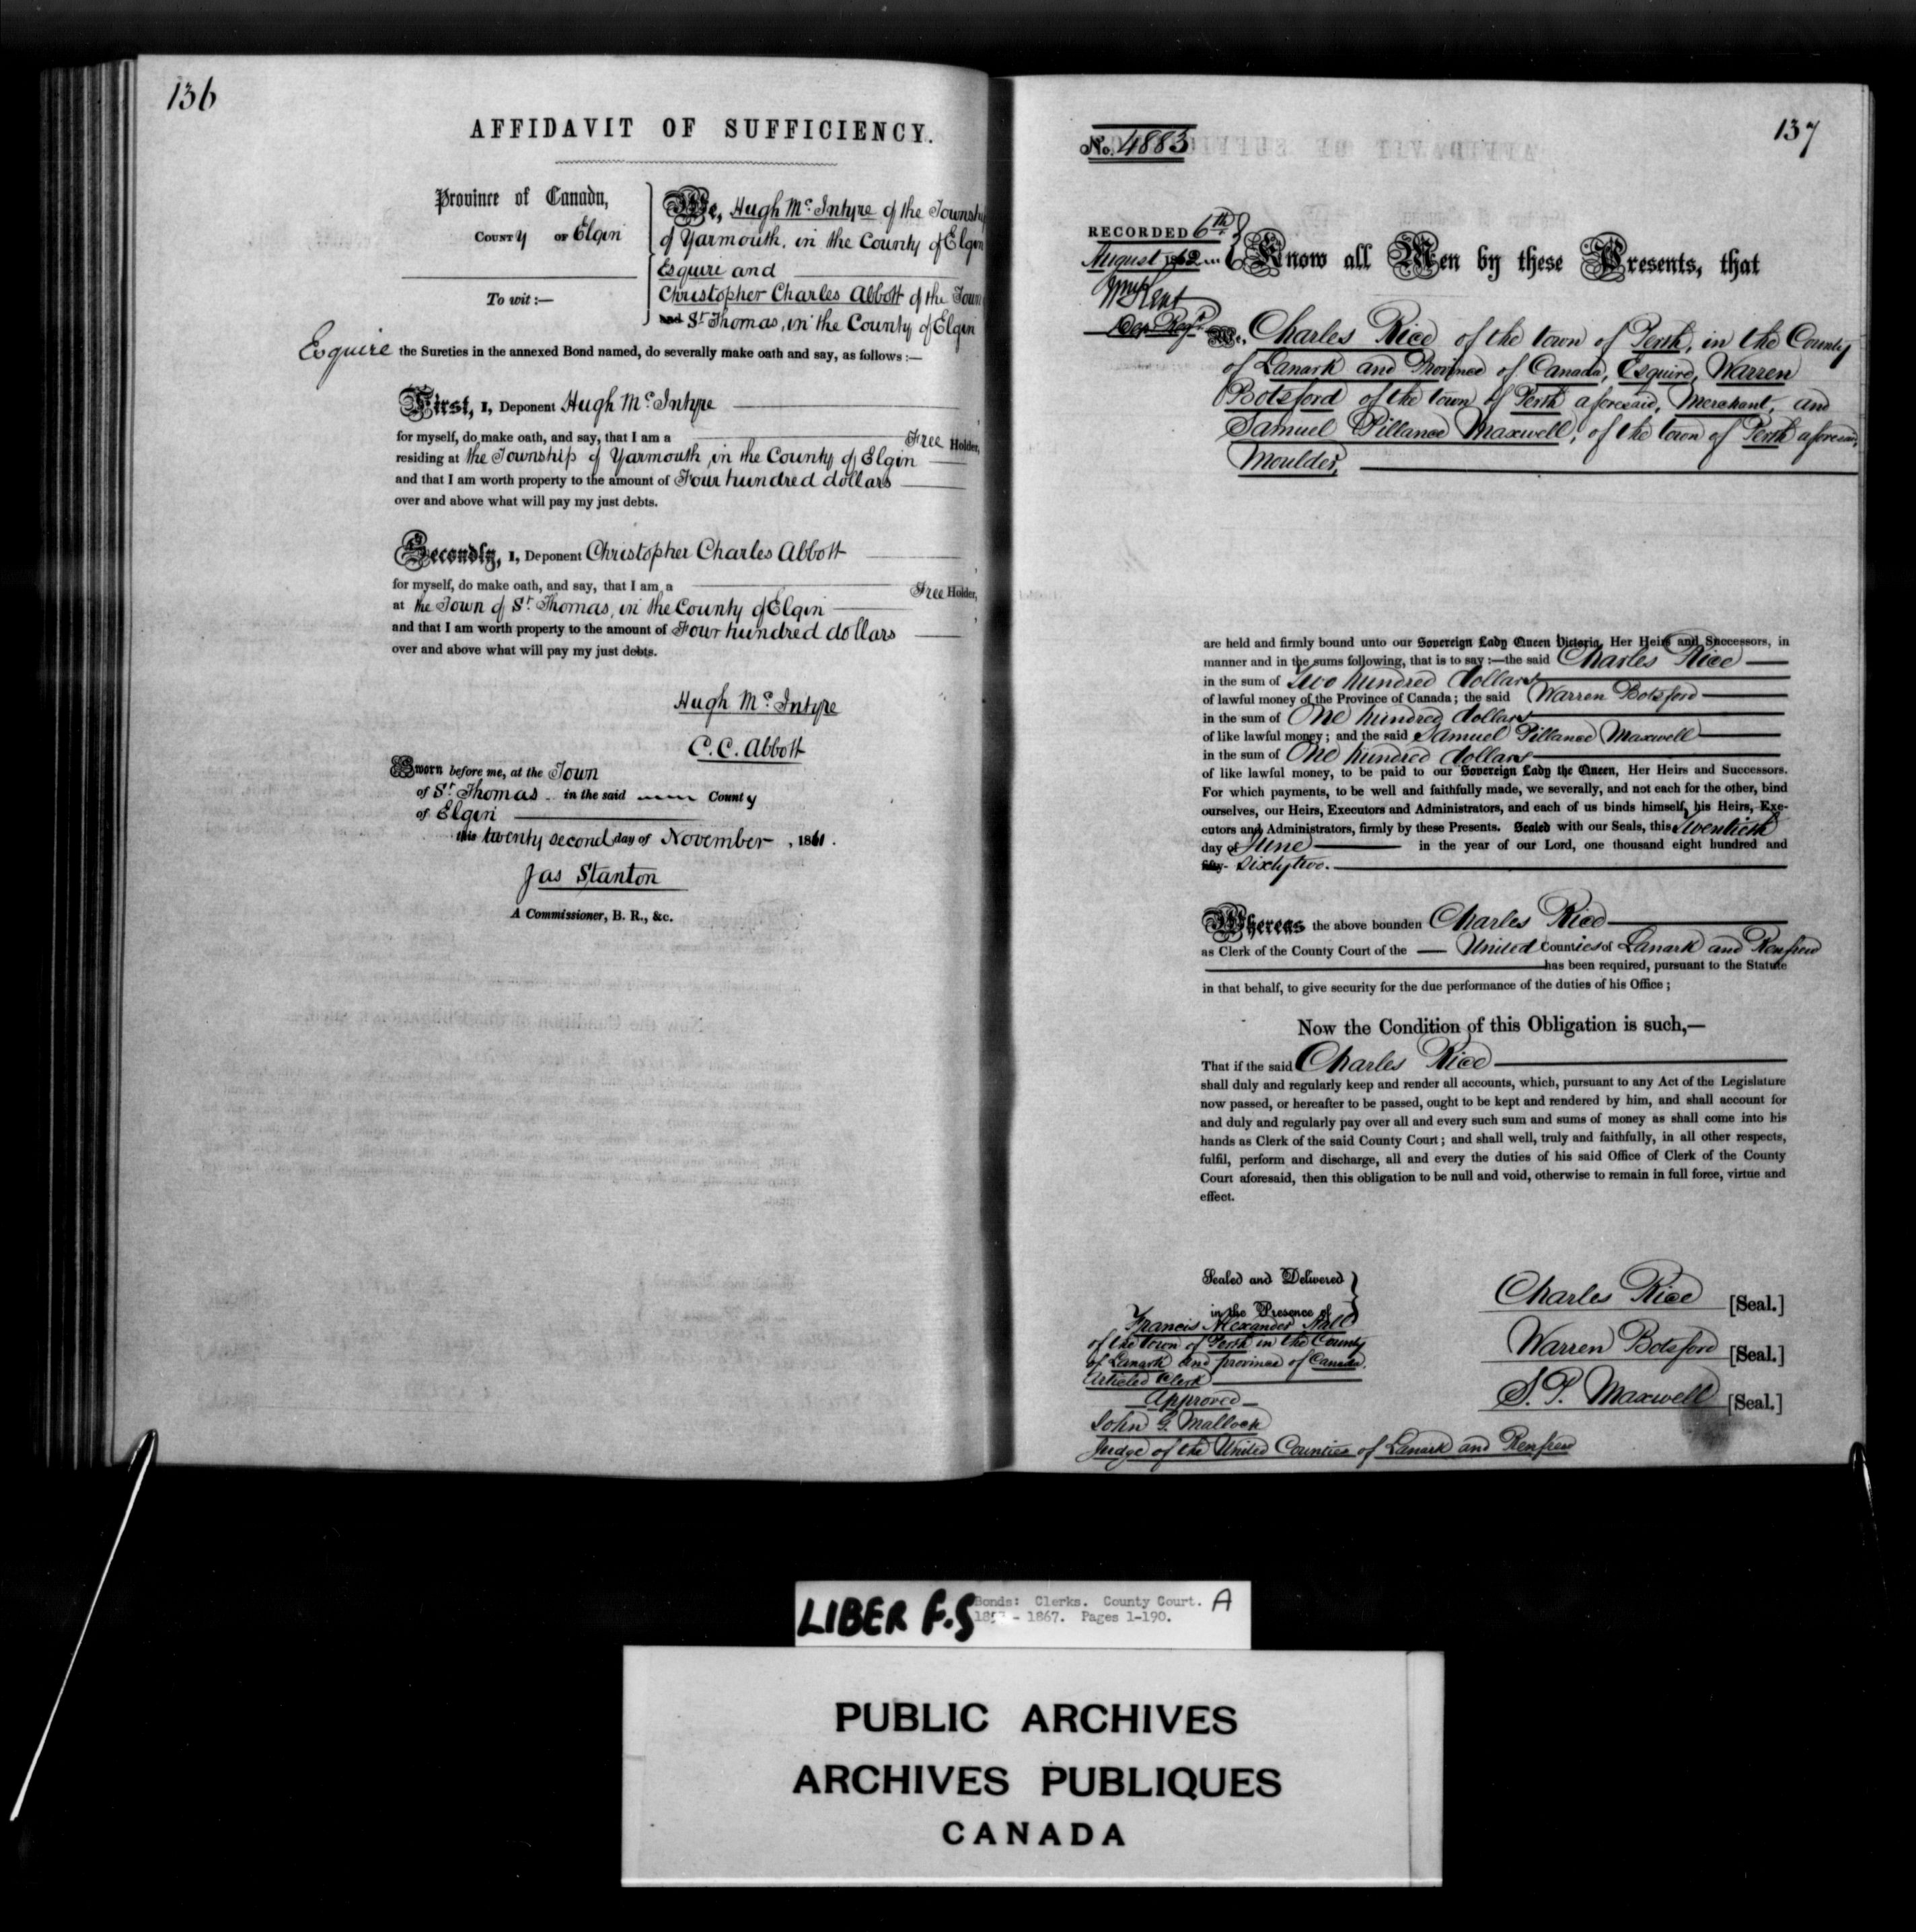 136
AFFIDAVIT OF SUFFICIENCY.
Province of Canada,
COUNTY OF Elgin
To wit:—
We, Hugh McIntyre of the Township
of Yarmouth, in the County of Elgin
Esquire and
Christopher Charles Abbott of the Town
St Thomas, in the County of Elgin
Esquire the Sureties in the annexed Bond named, do severally make oath and say, as follows:—
First, I, Deponent Hugh McIntyre
for myself, do make oath, and say, that I am a Free Holder,
residing at the Township of Yarmouth, in the County of Elgin
and that I am worth property to the amount of Four hundred dollars
over and above what will pay my just debts.
Secondly, I, Deponent Christopher Charles Abbott
for myself, do make oath, and say, that I am a Free Holder,
at the Town of St Thomas, in the County of Elgin
and that I am worth property to the amount of Four hundred dollars
over and above what will pay my just debts.
Hugh McIntyre
C. C. Abbott
Sworn before me, at the Town
of St Thomas in the said County
of Elgin
this twenty second day of November, 1861.
Jas Stanton
A Commissioner, B. R., &c.
137
No. 4883
RECORDED 6th
August 1862
Wm Kent
Dep Regr
Know all Men by these Presents, that
We, Charles Rice of the town of Perth, in the County
of Lanark and Province of Canada, Esquire, Warren
Botsford of the town of Perth aforesaid, Merchant, and
Samuel Pillance Maxwell, of the town of Perth aforesaid,
Moulder,
are held and firmly bound unto our Sovereign Lady Queen Victoria, Her Heirs and Successors, in
manner and in the sums following, that is to say:—the said Charles Rice
in the sum of Two hundred dollars
of lawful money of the Province of Canada; the said Warren Botsford
in the sum of One hundred dollars
of like lawful money; and the said Samuel Pillance Maxwell
in the sum of One hundred dollars
of like lawful money, to be paid to our Sovereign Lady the Queen, Her Heirs and Successors.
For which payments, to be well and faithfully made, we severally, and not each for the other, bind
ourselves, our Heirs, Executors and Administrators, and each of us binds himself, his Heirs, Exe-
cutors and Administrators, firmly by these Presents. Sealed with our Seals, this twentieth
day of June in the year of our Lord, one thousand eight hundred and
fifty- Sixty two.
Whereas the above bounden Charles Rice
as Clerk of the County Court of the United Counties of Lanark and Renfrew
has been required, pursuant to the Statute
in that behalf, to give security for the due performance of the duties of his Office;
Now the Condition of this Obligation is such,—
That if the said Charles Rice
shall duly and regularly keep and render all accounts, which, pursuant to any Act of the Legislature
now passed, or hereafter to be passed, ought to be kept and rendered by him, and shall account for
and duly and regularly pay over all and every such sum and sums of money as shall come into his
hands as Clerk of the said County Court; and shall well, truly and faithfully, in all other respects,
fulfil, perform and discharge, all and every the duties of his said Office of Clerk of the County
Court aforesaid, then this obligation to be null and void, otherwise to remain in full force, virtue and
effect.
Sealed and Delivered
in the Presence of
Francis Alexander Hall
of the town of Perth in the County
of Lanark and province of Canada.
Articled Clerk
Approved
John G. Malloch
Judge of the United Counties of Lanark and Renfrew
Charles Rice [Seal.]
Warren Botsford [Seal.]
S. P. Maxwell [Seal.]
LIBER F.S
Bonds: Clerks. County Court. A
- 1867. Pages 1-190.
PUBLIC ARCHIVES
ARCHIVES PUBLIQUES
CANADA